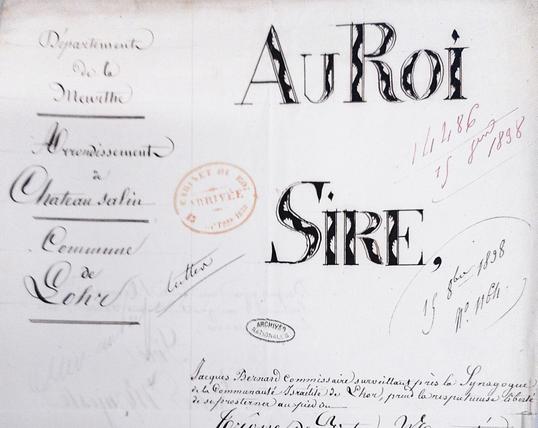 Département
de la
Meurthe
Arrondissement
de
Chateau salin
Commune
de
Lohr
AU ROI
SIRE,
14486
1898
CABINET DU ROI
ARRIVÉE
15 8bre 1898
N°. 1164.
ARCHIVES
NATIONALES
Jacques Bernard Commissaire surveillant près la Synagogue
de la Communauté Israélite de Lhor, prend la respectueuse liberté
de se prosterner au pied du
Trône de